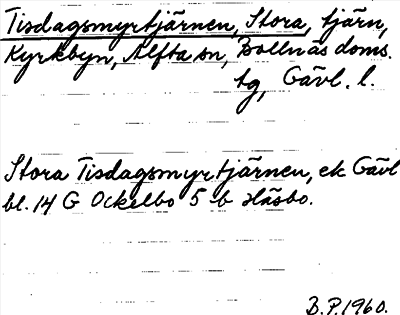 Tisdagsmyrtjärnen, Stora, tjärn,
Kyrkbyn, Alfta sn, Bollnäs doms.
tg, Gävl. l.
Stora Tisdagsmyrtjärnen, ek Gävl
bl. 14 G Ockelbo 5 b Häsbo.
B.P. 1960.